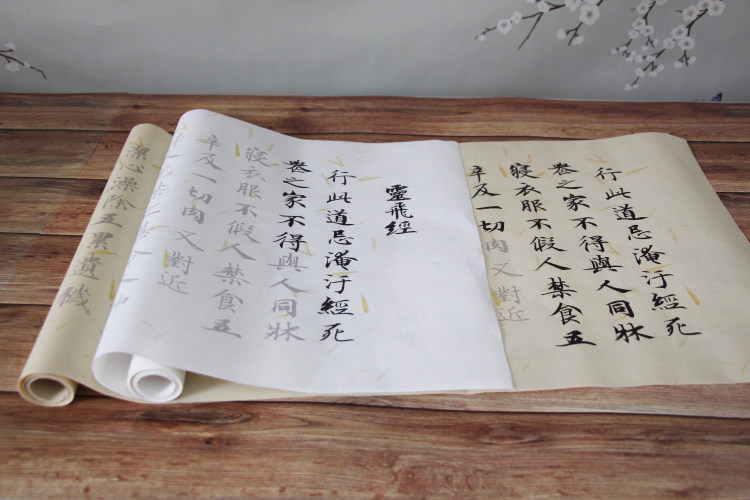 行此道忌淹汙經死
喪之家不得與人同牀
寢衣服不假人禁食五
辛及一切肉又對近
靈飛經
行此道忌淹汙經死
喪之家不得與人同牀
寢衣服不假人禁食五
辛及一切肉又對近
潔心澡除五累遺穢